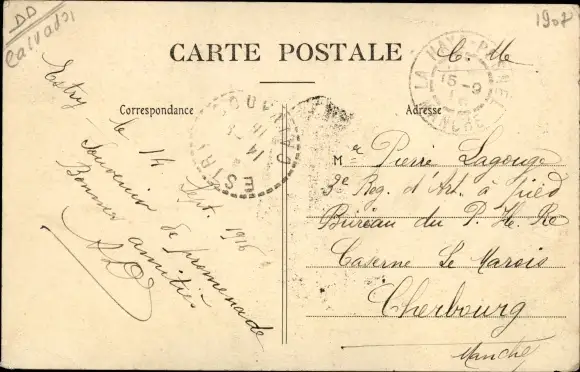 DD
Calvados
1907
CARTE POSTALE
C. M.
Correspondance
Adresse
LA HAYE-PESNEL
15-9
16
MANCHE
ESTRY
14
CALVADOS
Estry
le 14 Sept. 1916
Souvenir de promenade
Bonnes amitiés
AD
Mr Pierre Lagouge
3e Reg. d'Art. à pied
Bureau du P. He. Re
Caserne Le Marois
Cherbourg
Manche